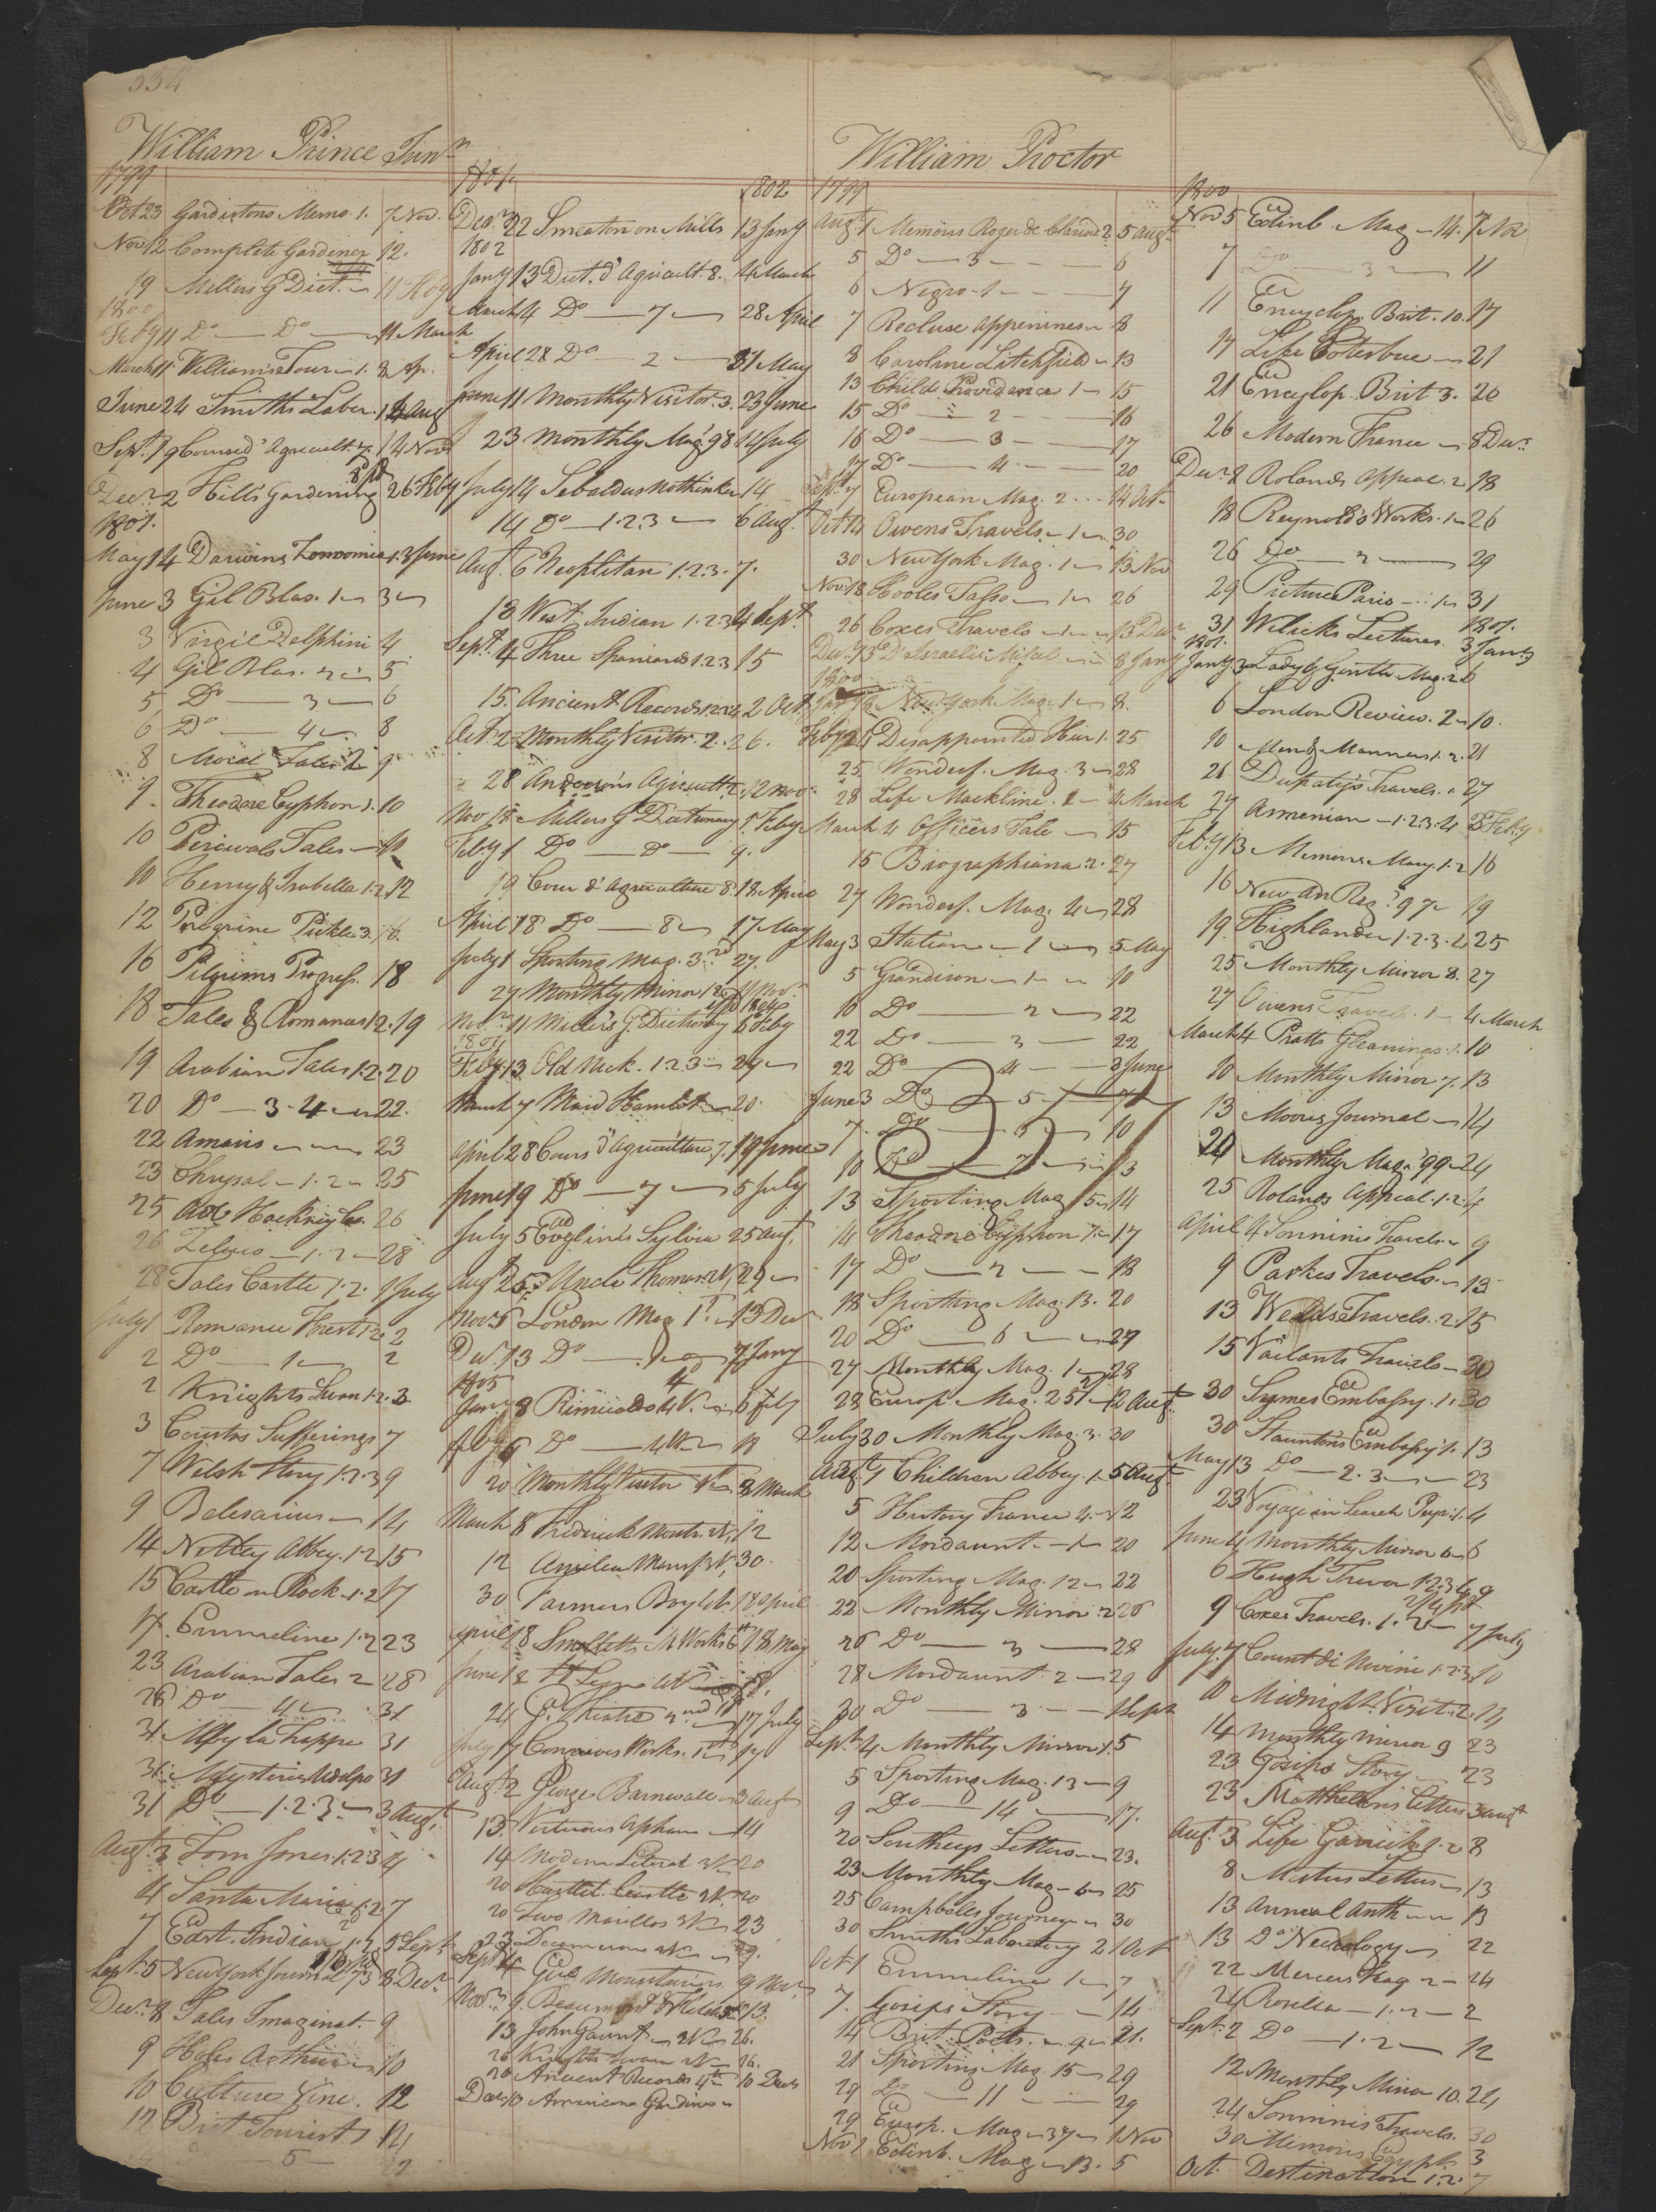 334
William Prince Junr
1799
Oct 23 Gardistons Memo. 1. 7 Nov.
Nov 12 Complete Gardener 12.
19 Millers G Dict. 11 Feby
1800
Feby 11 Do — Do — 11 March
March 11 Williams's Tour 1. 8 Ap.
June 24 Smiths Labor. 1 4 Aug
Sept. 19 Cours d'Agricult. 7. 14 Nov
Decr 2 Hill's Gardening 26 Feby
1801.
May 14 Darwins Zoonomia 1. 3 June
June 3 Gil Blas. 1 3
3 Virgil Delphini 4
4 Gil Blas. 2 5
5 Do — 3 — 6
6 Do — 4 8
8 Moral Tales 2 9
9. Theodore Cyphon 1. 10
10 Percivals Tales 10
10 Henry & Isabella 1.2. 12
12 Peregrine Pickle 3. 16.
16 Pilgrims Progress. 18
18 Tales & Romances 1.2. 19
19 Arabian Tales 1.2. 20
20 Do — 3.4 22.
22 Amaris 23
23 Chrysal 1.2 25
25 26
26 Zeluco — 1.2 — 28
28 Tales Castle 1.2. 1 July
July 1 Romance Forest 1.2. 2
2 Do — 1 2
2 Knights Swan 1.2. 3
3 Courtos Sufferings 7
7 Welsh Story 1.2.3 9
9 Belesarius 14
14 Nettley Abbey. 1.2 15
15 Castle on Rock. 1.2 17
17. Emmeline 1.2 23
23 Arabian Tales 2 28
28 Do — 4 31
31 31
31 Mysteries Udolpo 31
31 Do — 1.2.3. 3 Augt.
Augt. 3 Tom Jones 1.2.3 4
4 Santa Maria 1.2. 7
7 East. Indian 1.2 5 Sept
Sept. 5 New York Journ 8 Decr
Decr. 8 Tales Imaginat. 9
9 Holes Arthur 10
10 Culture Vine. 12
12 Brit Tourist 1 14
— 5 — 22
1801.
1802
Decr 22 Smeaton on Mills 13 Jany
1802
Jany 13 Dict. d'Agricult. 8. 4 March
March 4 Do — 7 28 April
April 28 Do — 2 — 31 May
June 11 Monthly Visitor. 3. 23 June
23 Monthly Mag. 98 14 July
July 14 Sebaldus Nothinker 14
14 Do — 1.2.3 6 Aug.
Aug. 6 Neoplitan 1.2.3. 7.
18 West Indian 1.2.3 4 Sept.
Sept. 4 Three Spaniards 1.2.3 15
15. Ancient Records 1.2.3.4. 2 Oct
Oct. 2 Monthly Visitor. 2. 26.
28 Anderson's Agricult. 2. 12 Novr
Nov 15 Millers G Dictionary 1. Feby
Feby 1 Do — Do — 9.
19 Cour d'Agriculture 8. 18 April
April 18 Do — 8 17 May
July 1 Sporting Mag. 3.rd 27.
27 Monthly Mirror 12 11 Novr.
Novr 11 Miller's G. Dictionary 6 Feby
1804
Feby 13 Old Nick. 1.2.3 29
March 7 Maid Hamlet 20.
April 28 Cours d'Agriculture 7. 19 June
June 19 Do — 7 5 July
July 5 Evelin's Sylvia 25 Aug.
Augt 25. Uncle Thomas 2V. 29
Nov. 6 London Mag 1st 13 Dec
Decr. 13 Do — 1 7 Jany
1805
Jany 8 Rinaldo 4 V. 6 Feby
Feby 6 Do — 4 V. 18
20 Monthly Visitor 8 March
March 8 Fredrick Montr. 2V. 12
12 Amelia Mansf. 3V. 30.
30 Farmers Boy 18 April
April 18 Smolletts M Works 6th 18 May
June 18 St Leon 18.
24 J. Keates 2nd 17 July
July 17 Congreves Works. 1st 17
Augt. 2 George Barnwale 3 Augt
13. Virtuous Orphan 14
14 Modern Literat. 3V 20
20 Haztlet. Castle 2V. 20
20 Two Marillos 3V 23
23 Decameron 2V 29.
Sept 4 Gue Mountains 9 Nov.
Nov. 9. Beaumont & Fletch. 5. 13.
13 John Gaunt 3V. 26.
26 Knights Swan 2V. 26.
26 Ancient Records 4th 10 Decr
Decr 10 American Gardiner
William Proctor
1799
Augt 1 Memoirs Roger de Clarend. 2. 5 Augt.
5 Do — 3 — 6
6 Negro. 1 — 7
7 Recluse Appenines 8
8 Caroline Litchfield 13
13 Child. Providence 1 15
15 Do — 2 — 16
16 Do — 3 — 17
17 Do — 4 — 20
Sept. 7 European Mag. 2 14 Oct
Oct 14 Owens Travels. 1 30
30 New York Mag. 1 13 Nov
Nov. 18 Hooles Tasso 1 26
26 Coxes Travels 1 13 Decr
Decr. 13 D'Israelis Misel 8 Jany
1800
Jany New York Mag. 1 8.
Feby 24 Disappointed Heir 1. 25
25 Wonderf. Mag. 3 28
28 Life Mackline. 1 4 March
March 4 Officers Tale 15
15 Biographiana 2. 27
27 Wonderf. Mag. 4 28
May 3 Station 1 5 May
5 Grandison 1 10
10 Do — 2 22
22 Do — 3 — 22
22 Do — 4 — 3 June
June 3 Do — 5 7
7. Do — 6 10
10 Do — 7 13
13 Sporting Mag 5 14
14 Theodore Cyphon 1 17
17 Do — 2 — 18
18 Sporting Mag. 13. 20
20 Do — 6 27
27 Monthly Mag. 1 28
28 Europ. Mag. 25 12 Augt.
July 30 Monthly Mag. 3. 30
Augt. 1 Children Abbey. 1 5 Augt.
5 History France 4. 12
12 Mordaunt 1 20
20 Sporting Mag. 12 22
22 Monthly Mirror 2 26
26 Do — 3 — 28
28 Mordaunt 2 29
30 Do — 3 1 Sept
Sept. 4 Monthly Mirror 1. 5
5 Sporting Mag. 13 9
9 Do — 14 17.
20 Southeys Letters 23.
23 Monthly Mag. 6 25
25 Campbells Journey 30
30 Smiths Laboratory 2 1 Oct
Oct. 1 Emmeline 1 7
7. Gosips Story 14
14 Brit. Poets. 9 21.
21 Sporting Mag 15 29
29 Do — 11 29
29 Europ. Mag 37 1 Nov
Nov 1 Edinb. Mag 13. 5
1800
Nov 5 Edinb. Mag. 14. 7 Nov
7 Do — 3 11
11 Encyclop. Brit. 10. 17
17 Life Coterbue 21
21 Encyclop. Brit 3. 26
26 Modern France 8 Decr.
Decr. 8 Rolands Appeal. 2 18
18 Reynold's Works. 1 26
26 Do — 2 — 29
29 Picture Paris 1 31
1801.
31 Welicks Lectures. 3 Jany
1801.
Jany 3 Lady & Gentle Mag. 2 6
6 London Review. 2 10.
10 Men & Manners 1.2. 21
21 Dupaty's Travels. 27
27 Armenian 1.2.3.4 3 Feby
Feby 13 Memoirs Mary. 1.2 16
16 New An Reg. 97 19
19. Highlander 1.2.3.4 25
25 Monthly Mirror 8. 27
27 Owens Travels. 1 4 March
March 4 Pratts Gleanings 1. 10
10 Monthly Mirror 7. 13
13 Moores Journal 14
24 Monthly Mag. 99 24
25 Rolands Appeal. 1.2. 4
April 4 Sonninis Travels. 9
9 Parkes Travels. 13
13 Welds Travels. 2. 15
15 Vailants Travels 30
30 Symes Embassy. 1. 30
30 Staunton's Embassy 1. 13
May 13 Do — 2.3 23
23 Voyage in Search Perys. 1. 4
June 4 Monthly Mirror 6 6
6 Hugh Trevor 1.2.3.4 9
9 Coxes Travels. 1. 2 7 July
July. 7 Count di Novini 1.2.3 10
10 Midnight Visit. 2. 14
14 Monthly Mirror 9 23
23 Gosips Story 23
23 Matthesons Letters 3 Augt
Augt. 3 Life Garrick 1.2 8
8 Metus Letters 13
13 Annual Anth 13
13 Do Necrology 22
22 Merceis Frag 2 24
24 Rosella 1.2 2
Sept. 2 Do — 1.2 12
12 Monthly Mirror 10. 24
24 Sonninis Travels. 30
30 Memoirs Egypt. 3
Oct. Destination 1.2. 7